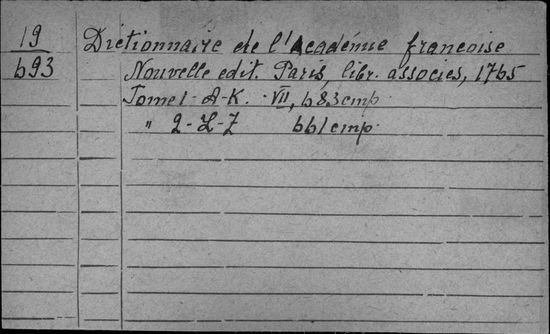 19
693
Dictionnaire de l'Académie françoise
Nouvelle edit. Paris, libr. associes, 1765
Tome 1 - A-K. VII, 683 cmp.
" 2 - L-Z 661 cmp.